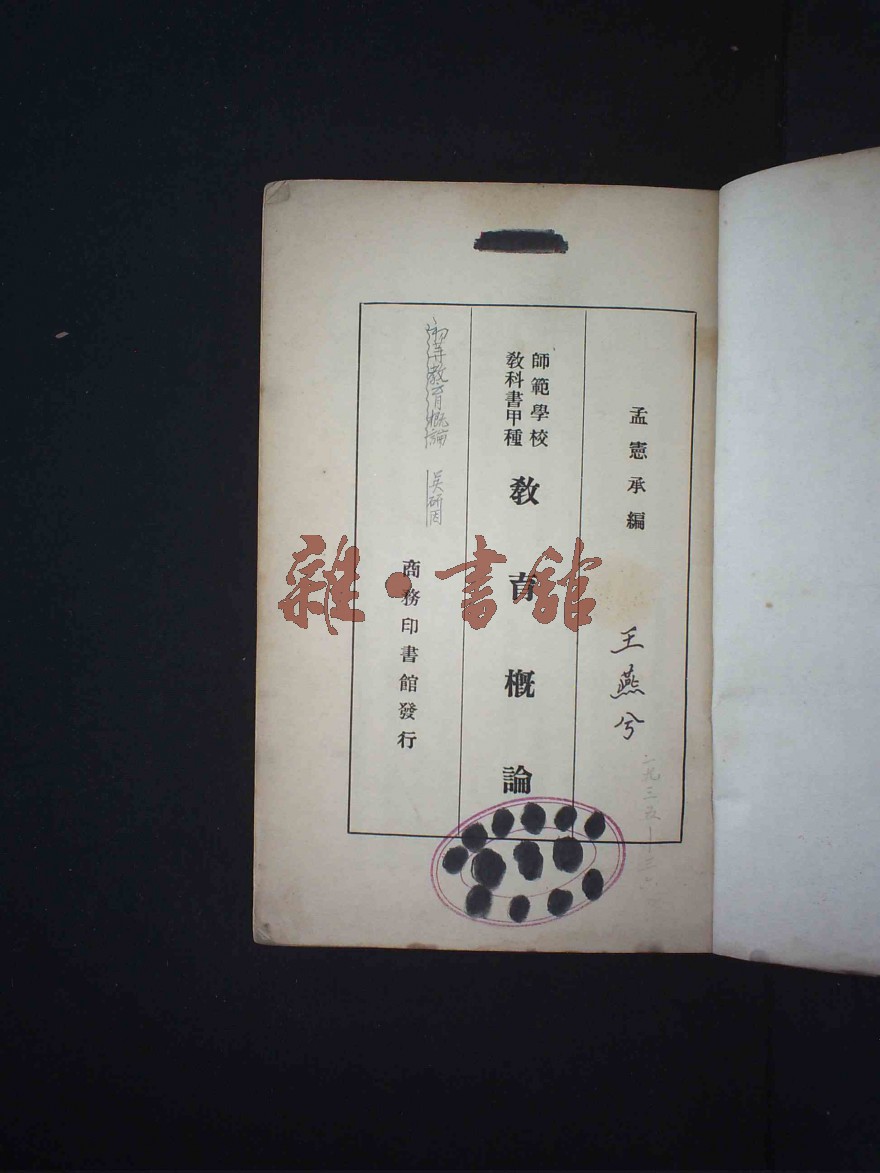 孟憲承編
王燕兮
師範學校
教科書甲種
教育概論
教育概論 吳研因
商務印書館發行
雜·書館